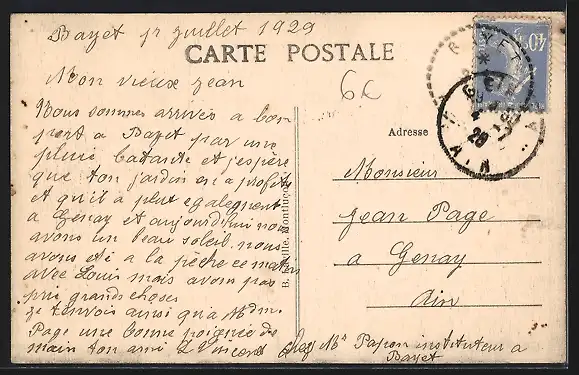 Bayet 1r juillet 1929
CARTE POSTALE
Mon vieux jean
6c
Nous sommes arrives a bon
port a Bayet par une
pluie batante et j'espère
que ton jardin en a profité
et qu'il a plut egalement
a Genay et aujourd'hui nous
avons un beau soleil. nous
avons eté a la pêche ce matin
avec Louis mais avons pas
pri grand chose
je t'envois ainsi qu'a Mdme
Page une bonne poignée de
main ton ami L Vincent
Adresse
Monsieur
jean Page
a Genay
Ain
chez Mr Papon instituteur a
Bayet
Montluçon
BAYET
AIN
40c